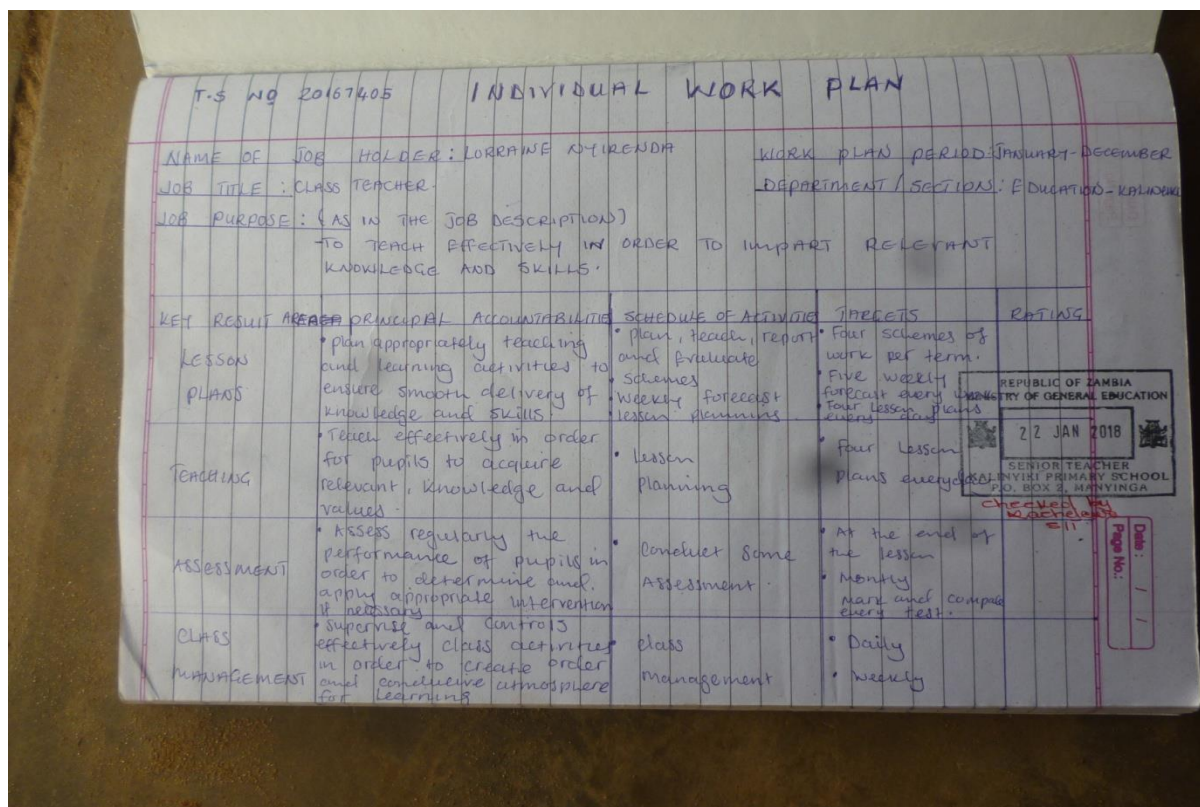 T.S NO 20167405 INDIVIDUAL WORK PLAN
NAME OF JOB HOLDER: LORRAINE NYIRENDA
WORK PLAN PERIOD: JANUARY-DECEMBER
JOB TITLE: CLASS TEACHER.
DEPARTMENT / SECTION: EDUCATION-
JOB PURPOSE: (AS IN THE JOB DESCRIPTION)
-TO TEACH EFFECTIVELY IN ORDER TO IMPART RELEVANT
KNOWLEDGE AND SKILLS.
KEY RESULT AREA PRINCIPAL ACCOUNTABILITIE SCHEDULE OF ACTIVITIE TARGETS RATING
LESSON
PLANS
• plan appropriately teaching
and learning activities to
ensure smooth delivery of
knowledge and skills.
• plan, teach, report
and Evaluate
• schemes
• weekly forecast
lesson planning
• Four schemes of
work per term.
• Five weekly
forecast every
• Four Lesson plans
every day
TEACHING
• Teach effectively in order
for pupils to acquire
relevant, knowledge and
values.
• Lesson
planning
• four Lesson
plans everyday
ASSESSMENT
• Assess regularly the
performance of pupils in
order to determine and.
apply appropriate intervention
if necessary
• Conduct some
Assessment.
• At the end of
the lesson
• Monthly
mark and compare
every test.
CLASS
MANAGEMENT
• Supervise and controls
effectively class activities
in order to create order
and conducive atmosphere
for learning
• class
management
• Daily
• Weekly
REPUBLIC OF ZAMBIA
MINISTRY OF GENERAL EDUCATION
22 JAN 2018
SENIOR TEACHER
KALINYIKI PRIMARY SCHOOL
P.O. BOX 2, MANYINGA
checked by
Date: / /
Page No.: